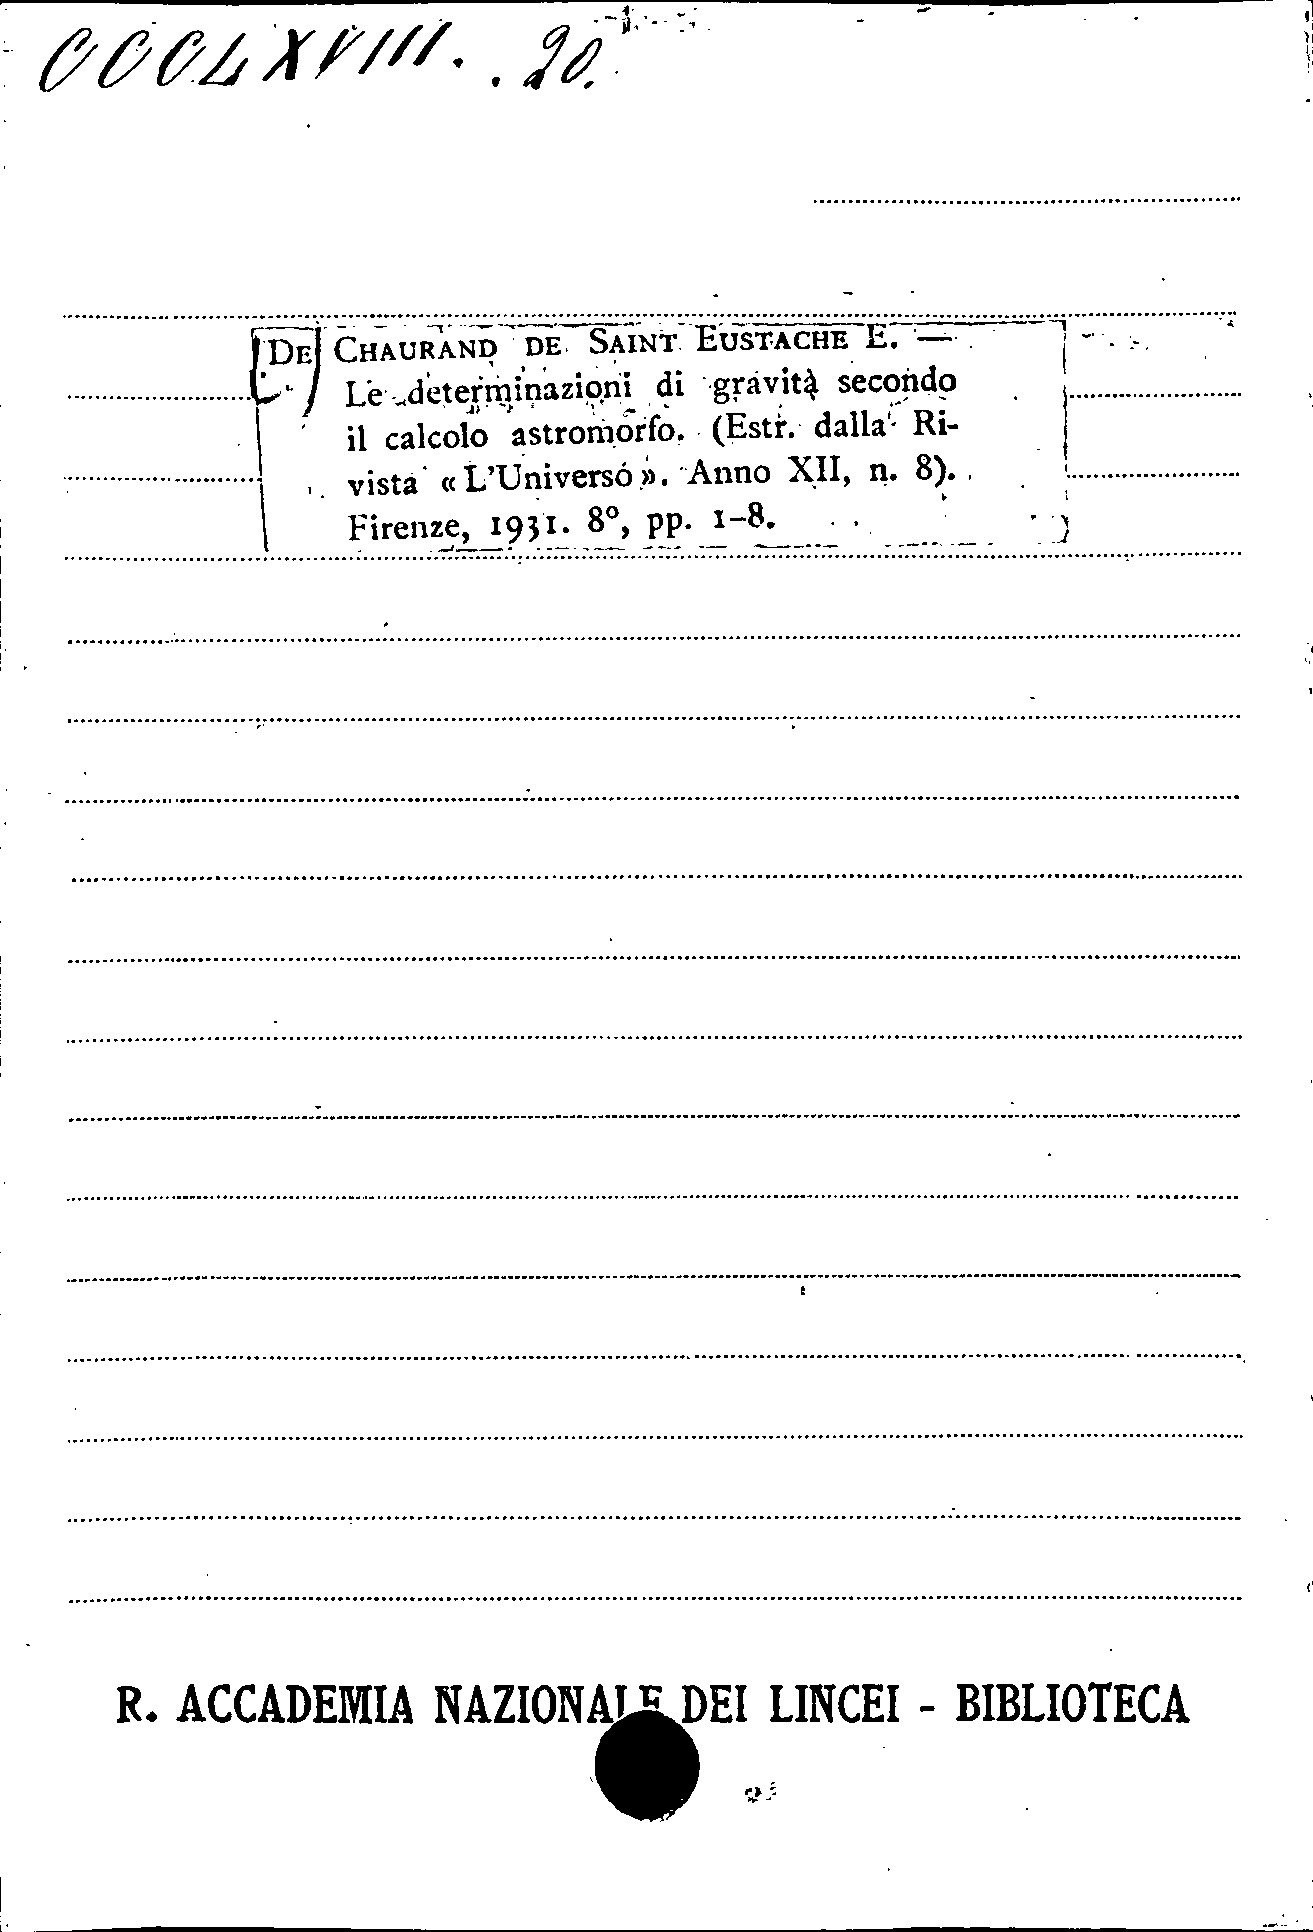 CCCLXVIII. 20.
DE CHAURAND DE SAINT EUSTACHE E. —
Le determinazioni di gravità secondo
il calcolo astromorfo. (Estr. dalla Ri-
vista « L'Universo ». Anno XII, n. 8).
Firenze, 1931. 8º, pp. 1-8.
R. ACCADEMIA NAZIONALE DEI LINCEI - BIBLIOTECA